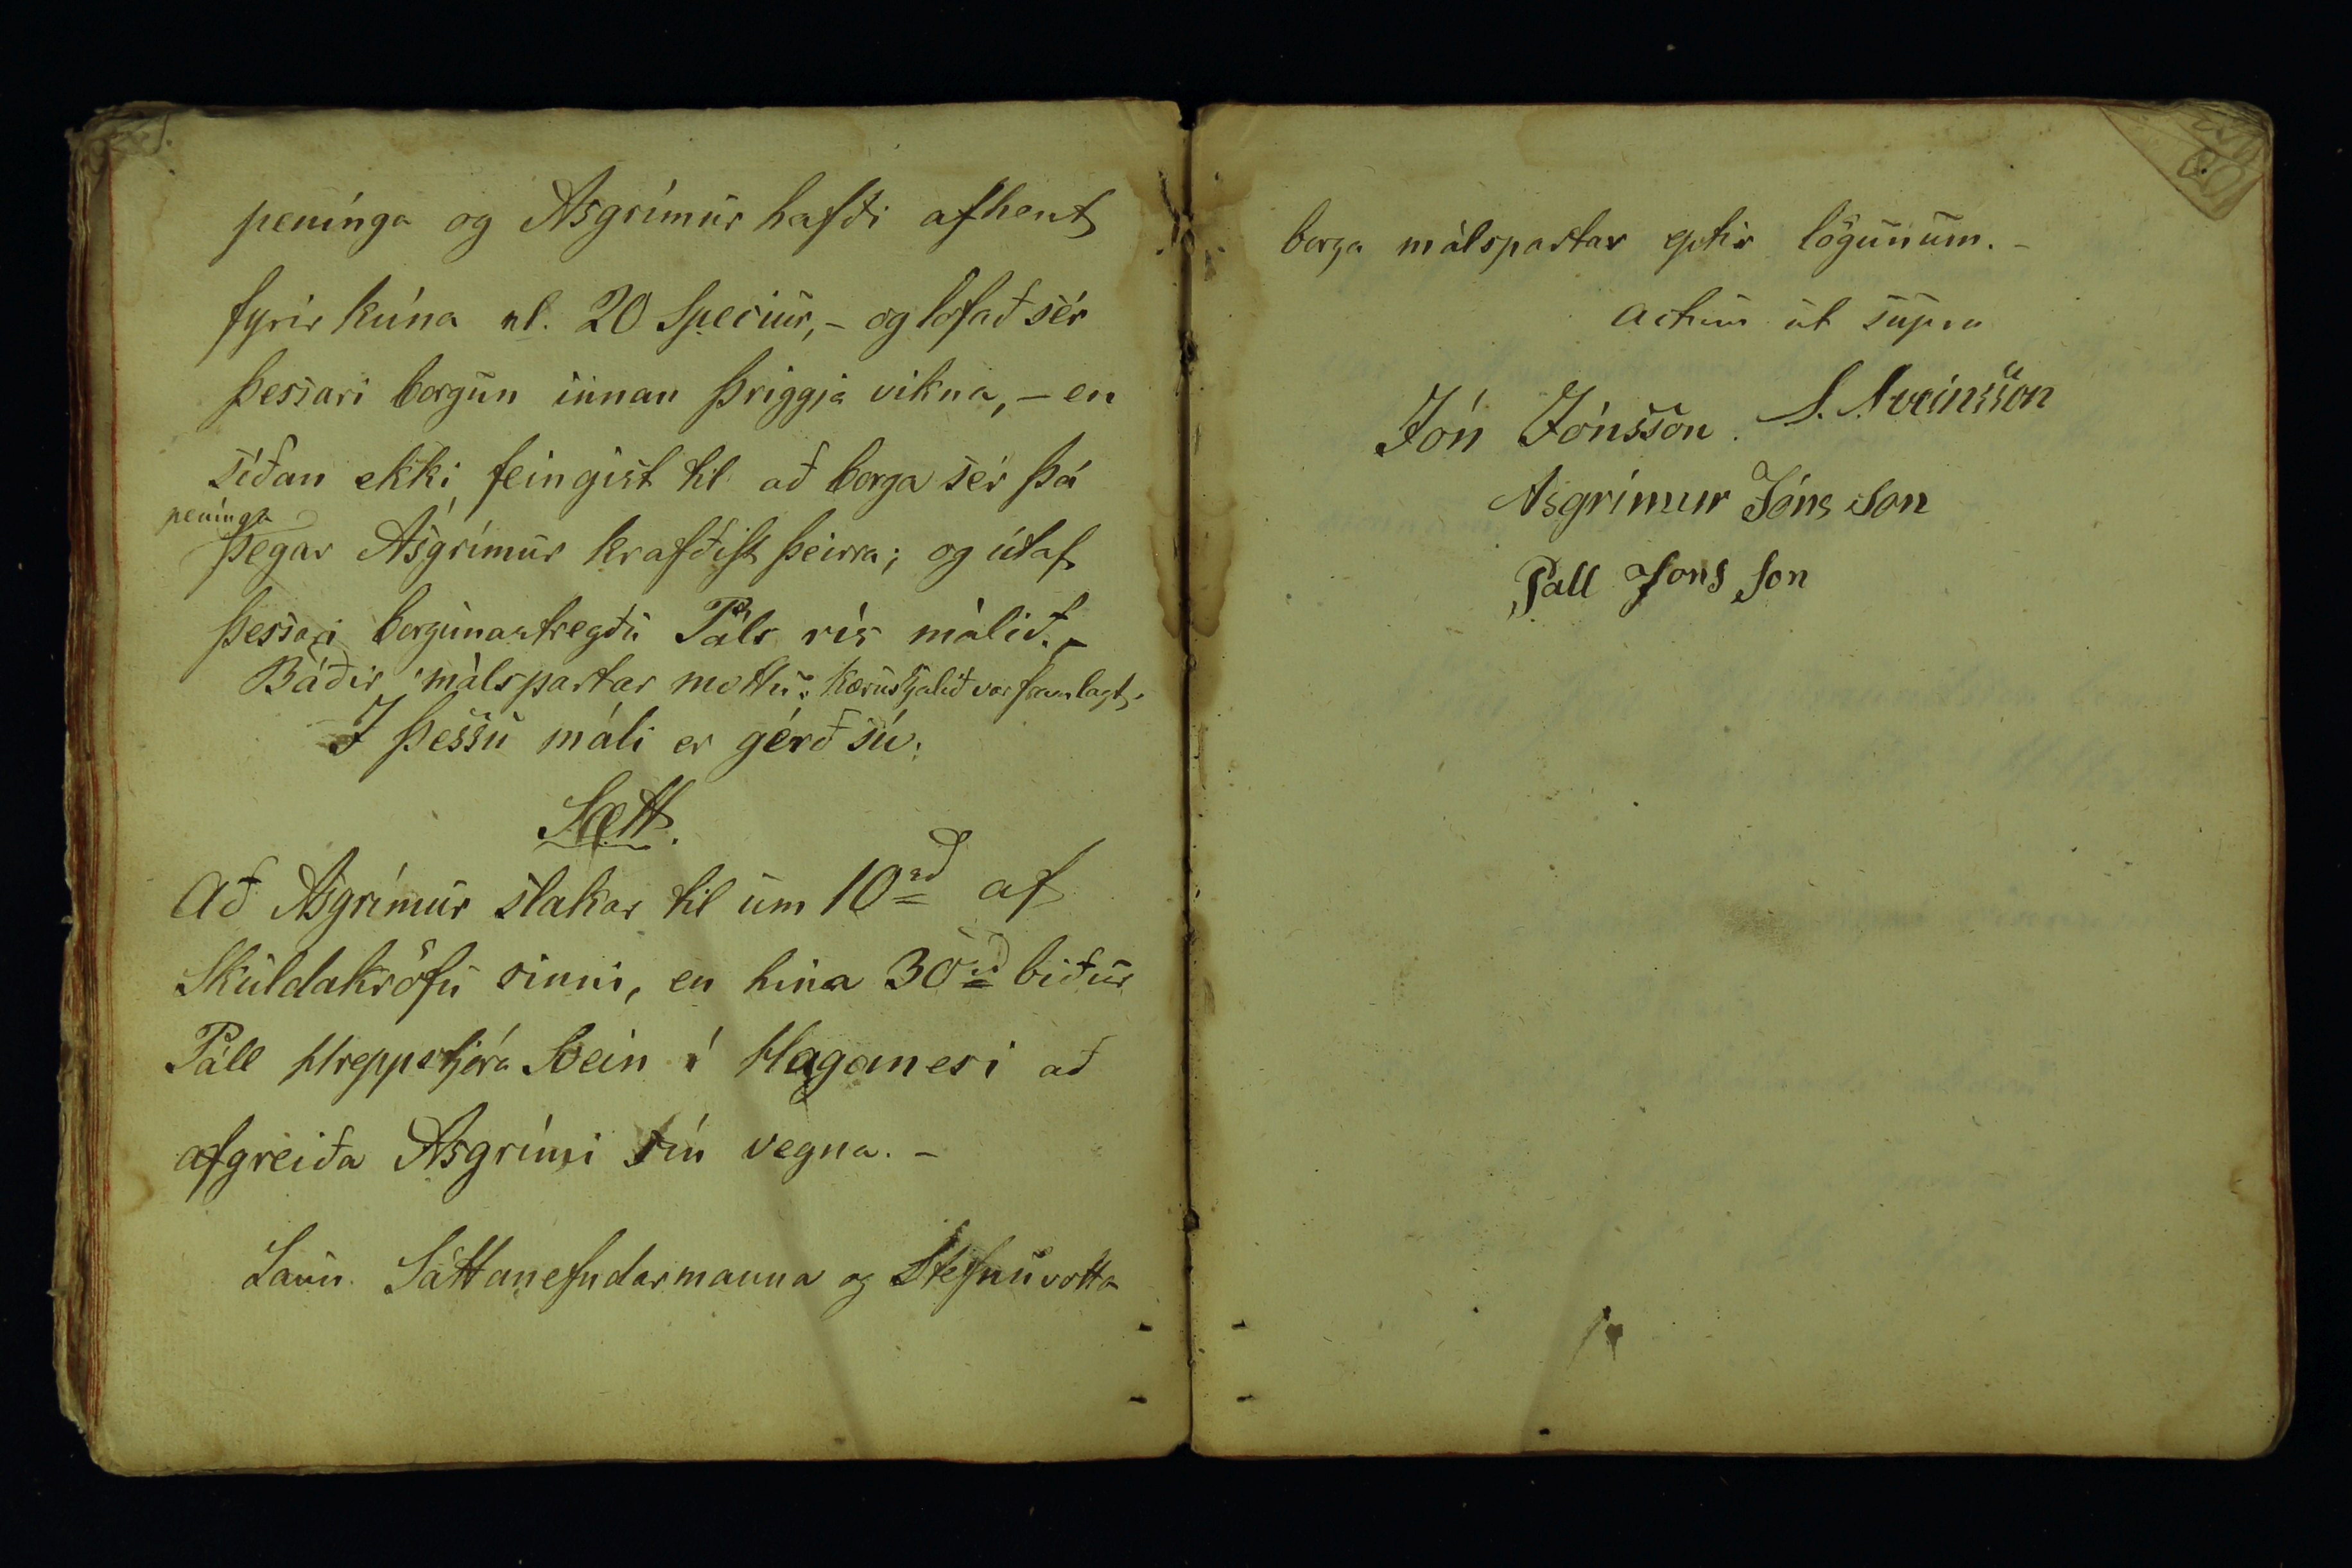 peninga og Asgrímur hafði afhent
fyrir kúna nl. 20 Speciur, - og lofað sér
þessari borgun innan þriggja vikna, - en
síðan ekki feingist til að borga sér þá
peninga
þegar Asgrímur krafðist þeirra; og útaf
þessari borgunartregðu Páls rís málið. -
Báðir málspartar mættu: Kæruskjalið var framlagt.
I þessu máli er gérð sú:
Sætt.
Að Asgrímur slakar til um 10rd af
Skuldakröfu sinni, en hina 30rd biður
Páll Hreppstjóra Svein í Haganesi að
afgreiða Asgrími sín vegna. -
Laun Sáttanefndarmanna og Stefnuvotta
borga málspartar eptir lögunum. -
actum ut supra
Jón Jónsson. S. Sveinsson
Asgrimur Jóns son
Pall Jons son